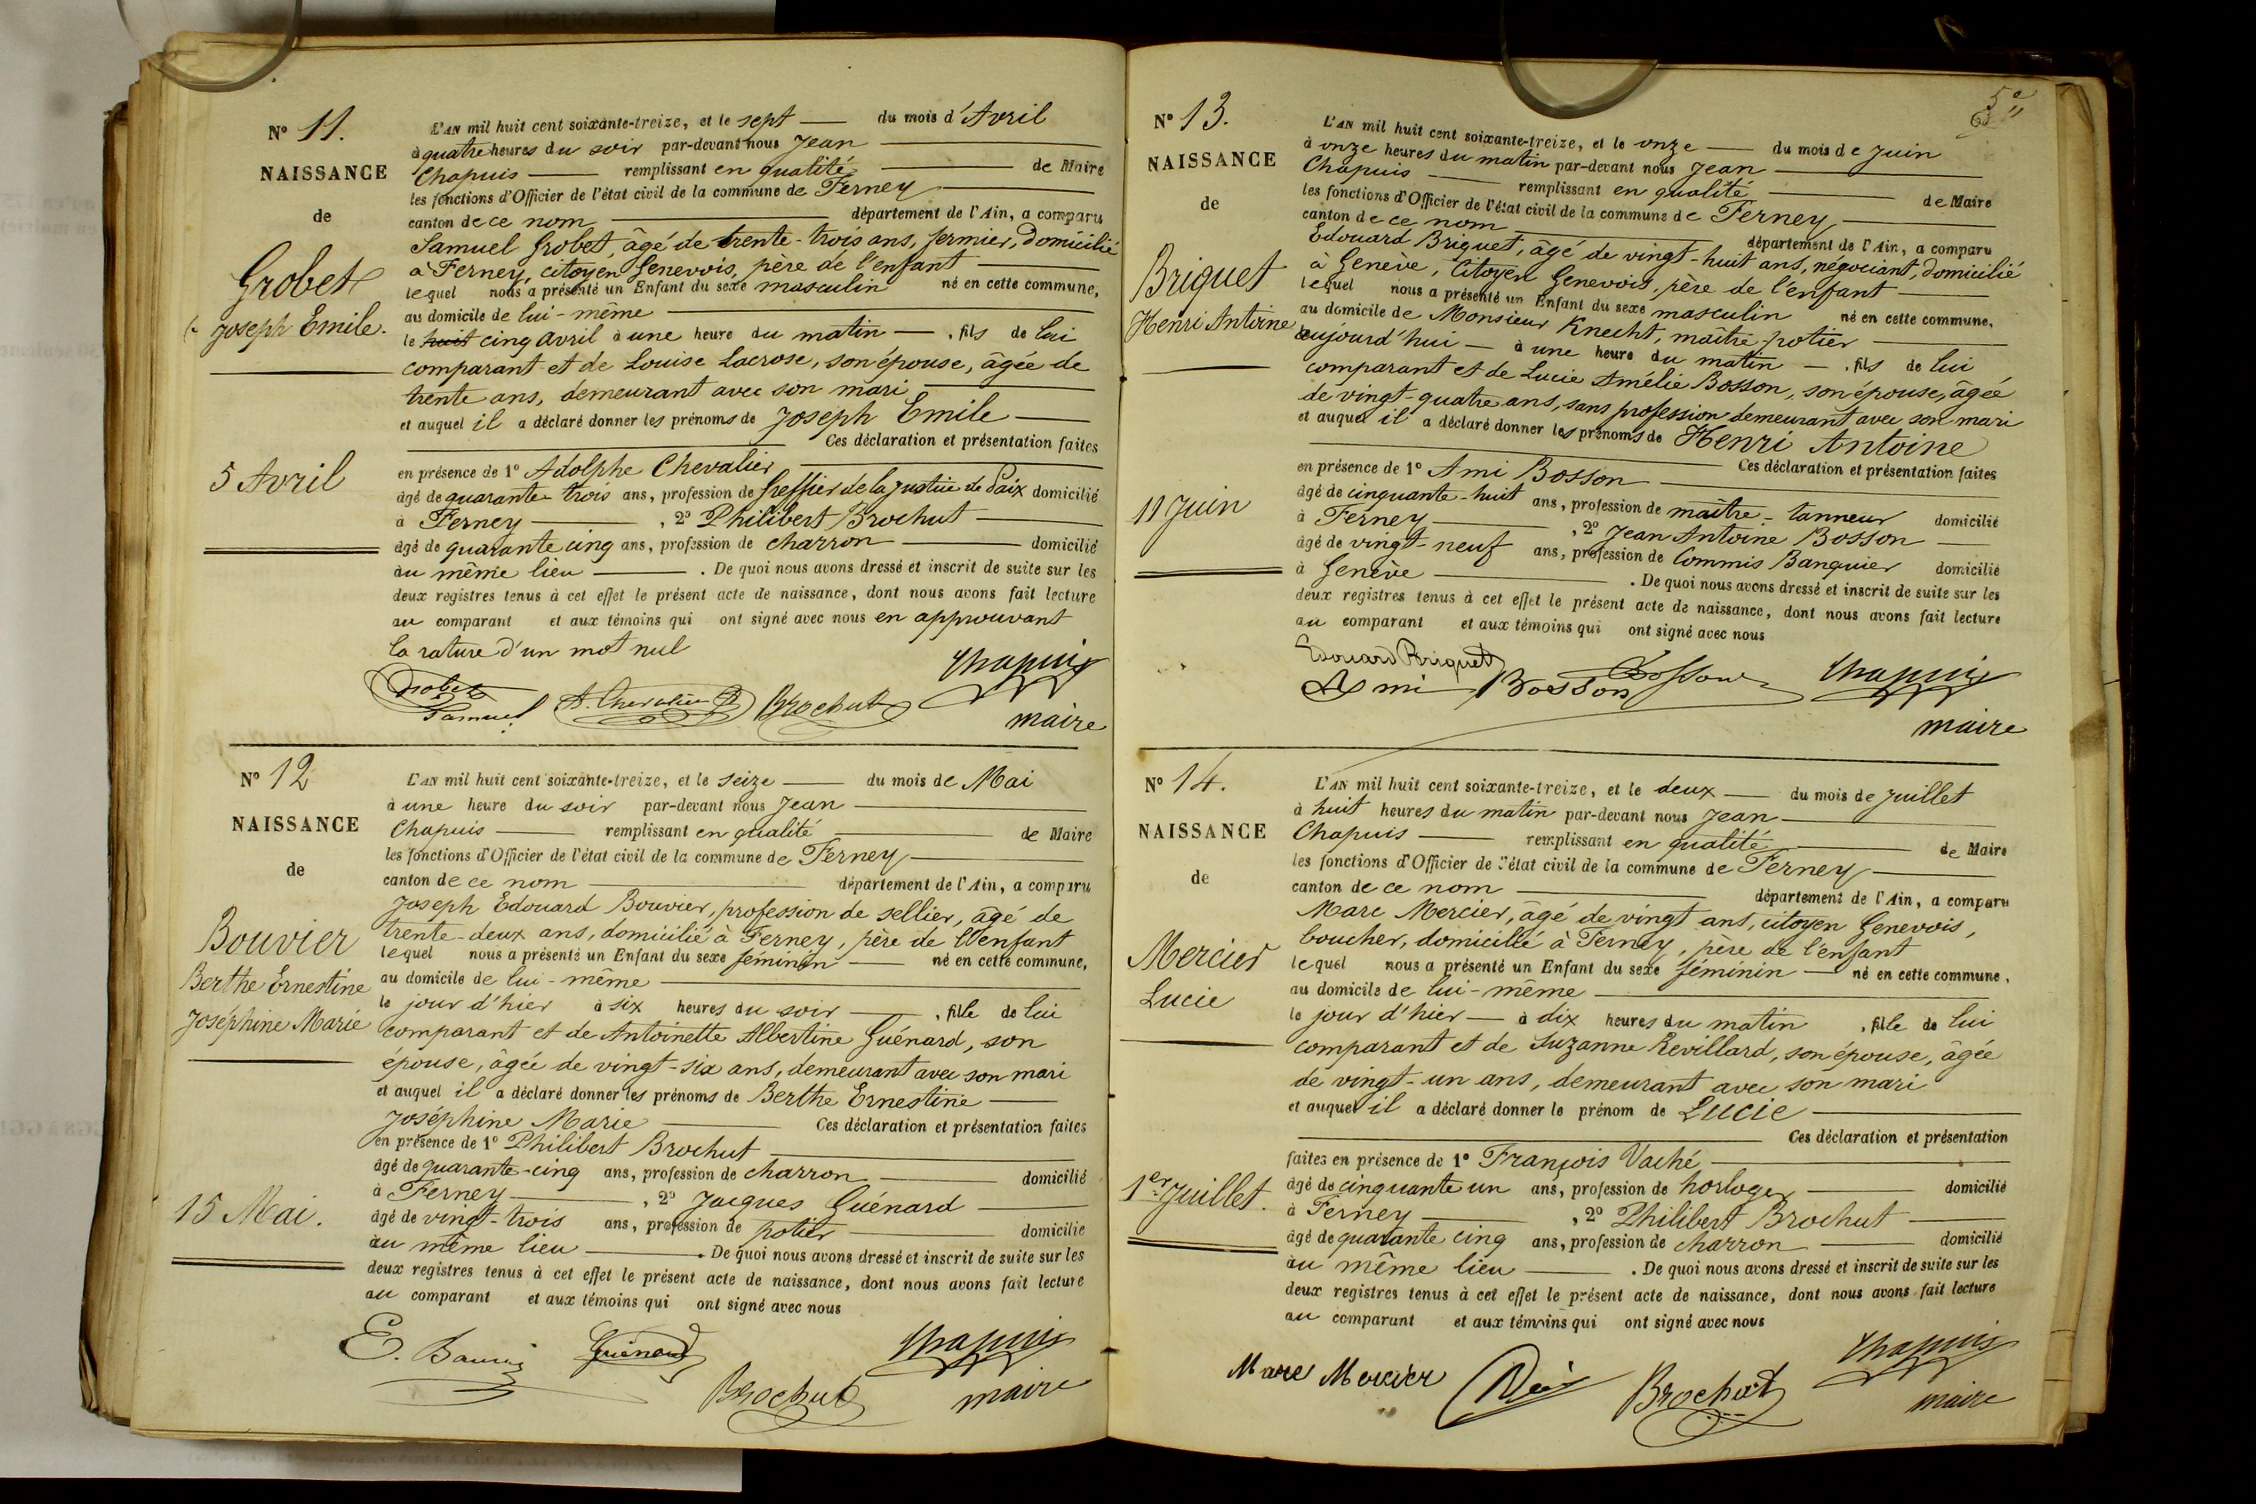 N° 11.
NAISSANCE
de
Grobet
Joseph Emile.
5 Avril
L'AN mil huit cent soixante-treize, et le sept du mois d'Avril
à quatre heures du soir par-devant nous Jean
Chapuis remplissant en qualité de Maire
les fonctions d'Officier de l'état civil de la commune de Ferney
canton de ce nom département de l'Ain, a comparu
Samuel Grobet, âgé de trente-trois ans, fermier, domicilié
à Ferney, citoyen Genevois, père de l'enfant
lequel nous a présenté un Enfant du sexe masculin né en cette commune,
au domicile de lui-même
le huit cinq avril à une heure du matin , fils de lui
comparant et de Louise Lacrose, son épouse, âgée de
trente ans, demeurant avec son mari
et auquel il a déclaré donner les prénoms de Joseph Emile
Ces déclaration et présentation faites
en présence de 1° Adolphe Chevalier
âgé de quarante-trois ans, profession de Greffier de la Justice de Paix domicilié
à Ferney , 2° Philibert Brochut
âgé de quarante cinq ans, profession de charron domicilié
au même lieu . De quoi nous avons dressé et inscrit de suite sur les
deux registres tenus à cet effet le présent acte de naissance, dont nous avons fait lecture
au comparant et aux témoins qui ont signé avec nous en approuvant
la rature d'un mot nul
Grobet Samuel A. Chevalier Brochut Chapuis
maire
N° 12
NAISSANCE
de
Bouvier
Berthe Ernestine
Joséphine Marie
15 Mai.
L'AN mil huit cent soixante-treize, et le seize du mois de Mai
à une heure du soir par-devant nous Jean
Chapuis remplissant en qualité de Maire
les fonctions d'Officier de l'état civil de la commune de Ferney
canton de ce nom département de l'Ain, a comparu
Joseph Edouard Bouvier, profession de sellier, âgé de
trente-deux ans, domicilié à Ferney, père de l'enfant
lequel nous a présenté un Enfant du sexe féminin né en cette commune,
au domicile de lui-même
le jour d'hier à six heures du soir , fille de lui
comparant et de Antoinette Albertine Guénard, son
épouse, âgée de vingt-six ans, demeurant avec son mari
et auquel il a déclaré donner les prénoms de Berthe Ernestine
Joséphine Marie Ces déclaration et présentation faites
en présence de 1° Philibert Brochut
âgé de quarante-cinq ans, profession de charron domicilié
à Ferney , 2° Jacques Guénard
âgé de vingt-trois ans, profession de potier domicilié
au même lieu . De quoi nous avons dressé et inscrit de suite sur les
deux registres tenus à cet effet le présent acte de naissance, dont nous avons fait lecture
au comparant et aux témoins qui ont signé avec nous
E. Guénard Brochut Chapuis
maire
5e
N° 13.
NAISSANCE
de
Briquet
Henri Antoine
11 Juin
L'AN mil huit cent soixante-treize, et le onze du mois de Juin
à onze heures du matin par-devant nous Jean
Chapuis remplissant en qualité de Maire
les fonctions d'Officier de l'état civil de la commune de Ferney
canton de ce nom département de l'Ain, a comparu
Edouard Briquet, âgé de vingt-huit ans, négociant, domicilié
à Genève, Citoyen Genevois, père de l'enfant
lequel nous a présenté un Enfant du sexe masculin né en cette commune,
au domicile de Monsieur Knecht, maître-potier
aujourd'hui à une heure du matin , fils de lui
comparant et de Lucie Amélie Bosson, son épouse, âgée
de vingt-quatre ans, sans profession demeurant avec son mari
et auquel il a déclaré donner les prénoms de Henri Antoine
Ces déclaration et présentation faites
en présence de 1° Ami Bosson
âgé de cinquante-huit ans, profession de maître-tanneur domicilié
à Ferney , 2° Jean Antoine Bosson
âgé de vingt-neuf ans, profession de Commis Banquier domicilié
à Genève . De quoi nous avons dressé et inscrit de suite sur les
deux registres tenus à cet effet le présent acte de naissance, dont nous avons fait lecture
au comparant et aux témoins qui ont signé avec nous
Edouard Briquet Bosson Chapuis
Ami Bosson
maire
N° 14.
NAISSANCE
de
Mercier
Lucie
1er Juillet.
L'AN mil huit cent soixante-treize, et le deux du mois de Juillet
à huit heures du matin par-devant nous Jean
Chapuis remplissant en qualité de Maire
les fonctions d'Officier de l'état civil de la commune de Ferney
canton de ce nom département de l'Ain, a comparu
Marc Mercier, âgé de vingt ans, citoyen Genevois,
boucher, domicilié à Ferney, père de l'enfant
lequel nous a présenté un Enfant du sexe féminin né en cette commune,
au domicile de lui-même
le jour d'hier à dix heures du matin , fille de lui
comparant et de Suzanne Revillard, son épouse, âgée
de vingt-un ans, demeurant avec son mari
et auquel il a déclaré donner le prénom de Lucie
Ces déclaration et présentation
faites en présence de 1° François Vaché
âgé de cinquante un ans, profession de horloger domicilié
à Ferney , 2° Philibert Brochut
âgé de quarante cinq ans, profession de charron domicilié
au même lieu . De quoi nous avons dressé et inscrit de suite sur les
deux registres tenus à cet effet le présent acte de naissance, dont nous avons fait lecture
au comparant et aux témoins qui ont signé avec nous
Marc Mercier Brochut Chapuis
maire